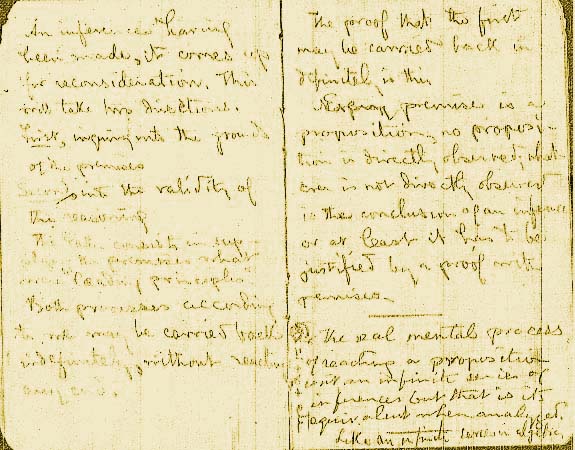 An inference having
been made, it comes up
for reconsideration. This
will take two directions.
First, inquiry into the grounds
of the premises
Second, into the validity of
the reasoning
The latter consists in sup-
the premises what
"leading principles"
Both processes according
to me may be carried back
indefinitely, without reaching
any end.
The proof that the first
may be carried back in
definitely is this
Every premise is a
proposition, no proposi-
tion is directly observed; what-
ever is not directly observed
is the conclusion of an inference
or at least it has to be
justified by a proof with
premises.
The real mental process
of reaching a proposition
is not an infinite series of
inferences but that is its
equivalent when analyzed.
Like an infinite series in algebra